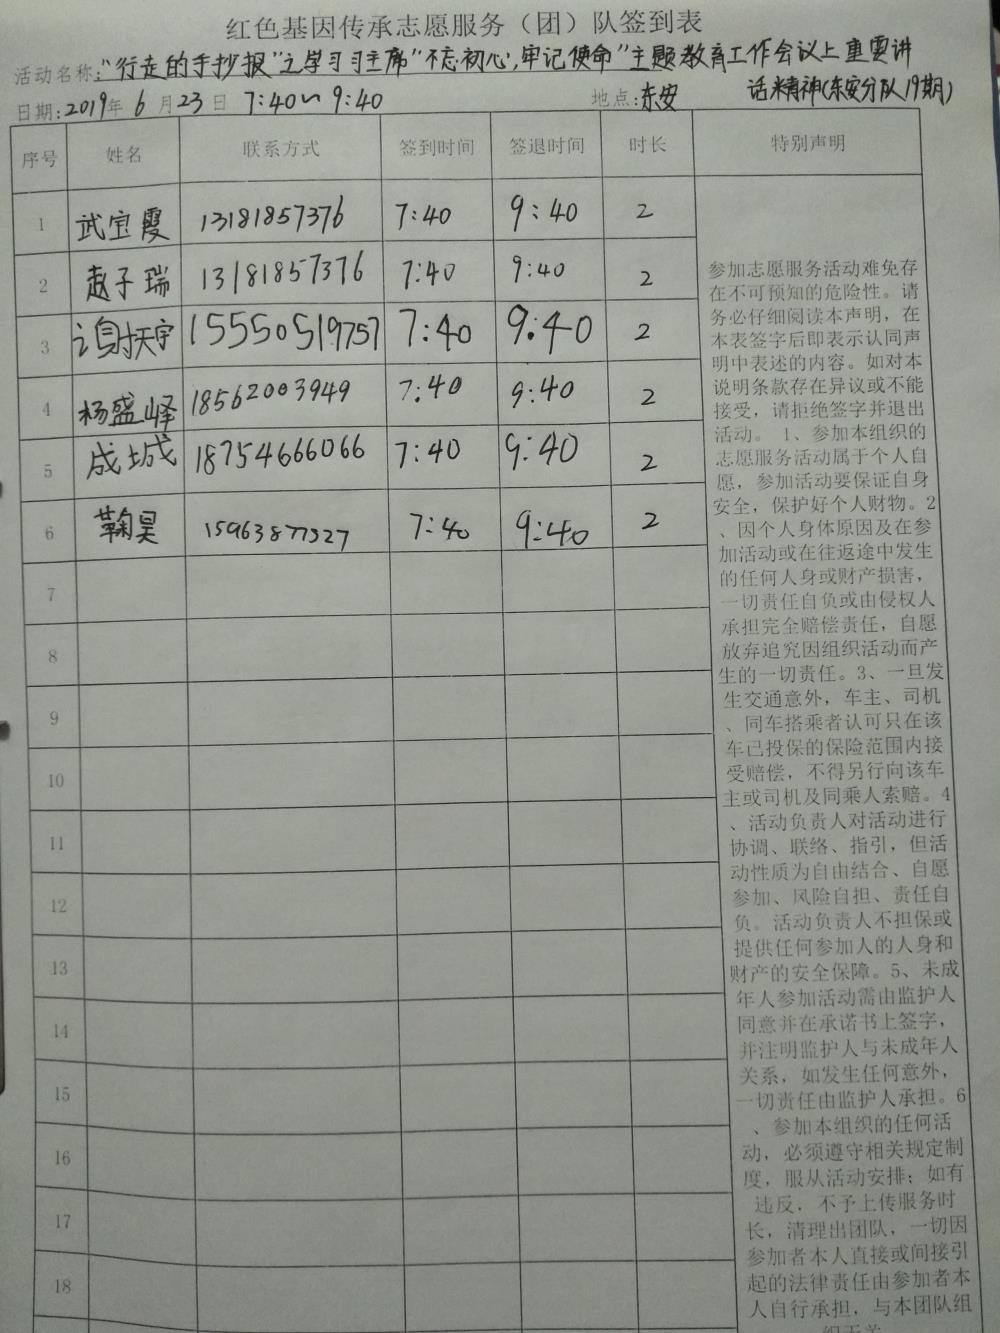 红色基因传承志愿服务（团）队签到表
活动名称:"行走的手抄报"之学习习主席"不忘初心,牢记使命"主题教育工作会议上重要讲
话精神(东安分队19期)
日期:2019年 6 月 23 日 7:40~9:40 地点:东安
序号 姓名 联系方式 签到时间 签退时间 时长 特别声明
1 武宝霞 13181857376 7:40 9:40 2
2 赵子瑞 13181857376 7:40 9:40 2
3 谢天宇 15550519757 7:40 9:40 2
4 杨盛峄 18562003949 7:40 9:40 2
5 成城 18754666066 7:40 9:40 2
6 鞠昊 15963877327 7:40 9:40 2
7
8
9
10
11
12
13
14
15
16
17
18
参加志愿服务活动难免存
在不可预知的危险性。请
务必仔细阅读本声明，在
本表签字后即表示认同声
明中表述的内容。如对本
说明条款存在异议或不能
接受，请拒绝签字并退出
活动。 1、参加本组织的
志愿服务活动属于个人自
愿，参加活动要保证自身
安全，保护好个人财物。2
、因个人身体原因及在参
加活动或在往返途中发生
的任何人身或财产损害，
一切责任自负或由侵权人
承担完全赔偿责任，自愿
放弃追究因组织活动而产
生的一切责任。3、一旦发
生交通意外，车主、司机
、同车搭乘者认可只在该
车已投保的保险范围内接
受赔偿，不得另行向该车
主或司机及同乘人索赔。4
、活动负责人对活动进行
协调、联络、指引，但活
动性质为自由结合、自愿
参加、风险自担、责任自
负。活动负责人不担保或
提供任何参加人的人身和
财产的安全保障。5、未成
年人参加活动需由监护人
同意并在承诺书上签字，
并注明监护人与未成年人
关系，如发生任何意外，
一切责任由监护人承担。6
、参加本组织的任何活
动，必须遵守相关规定制
度，服从活动安排；如有
违反，不予上传服务时
长，清理出团队，一切因
参加者本人直接或间接引
起的法律责任由参加者本
人自行承担，与本团队组
织无关